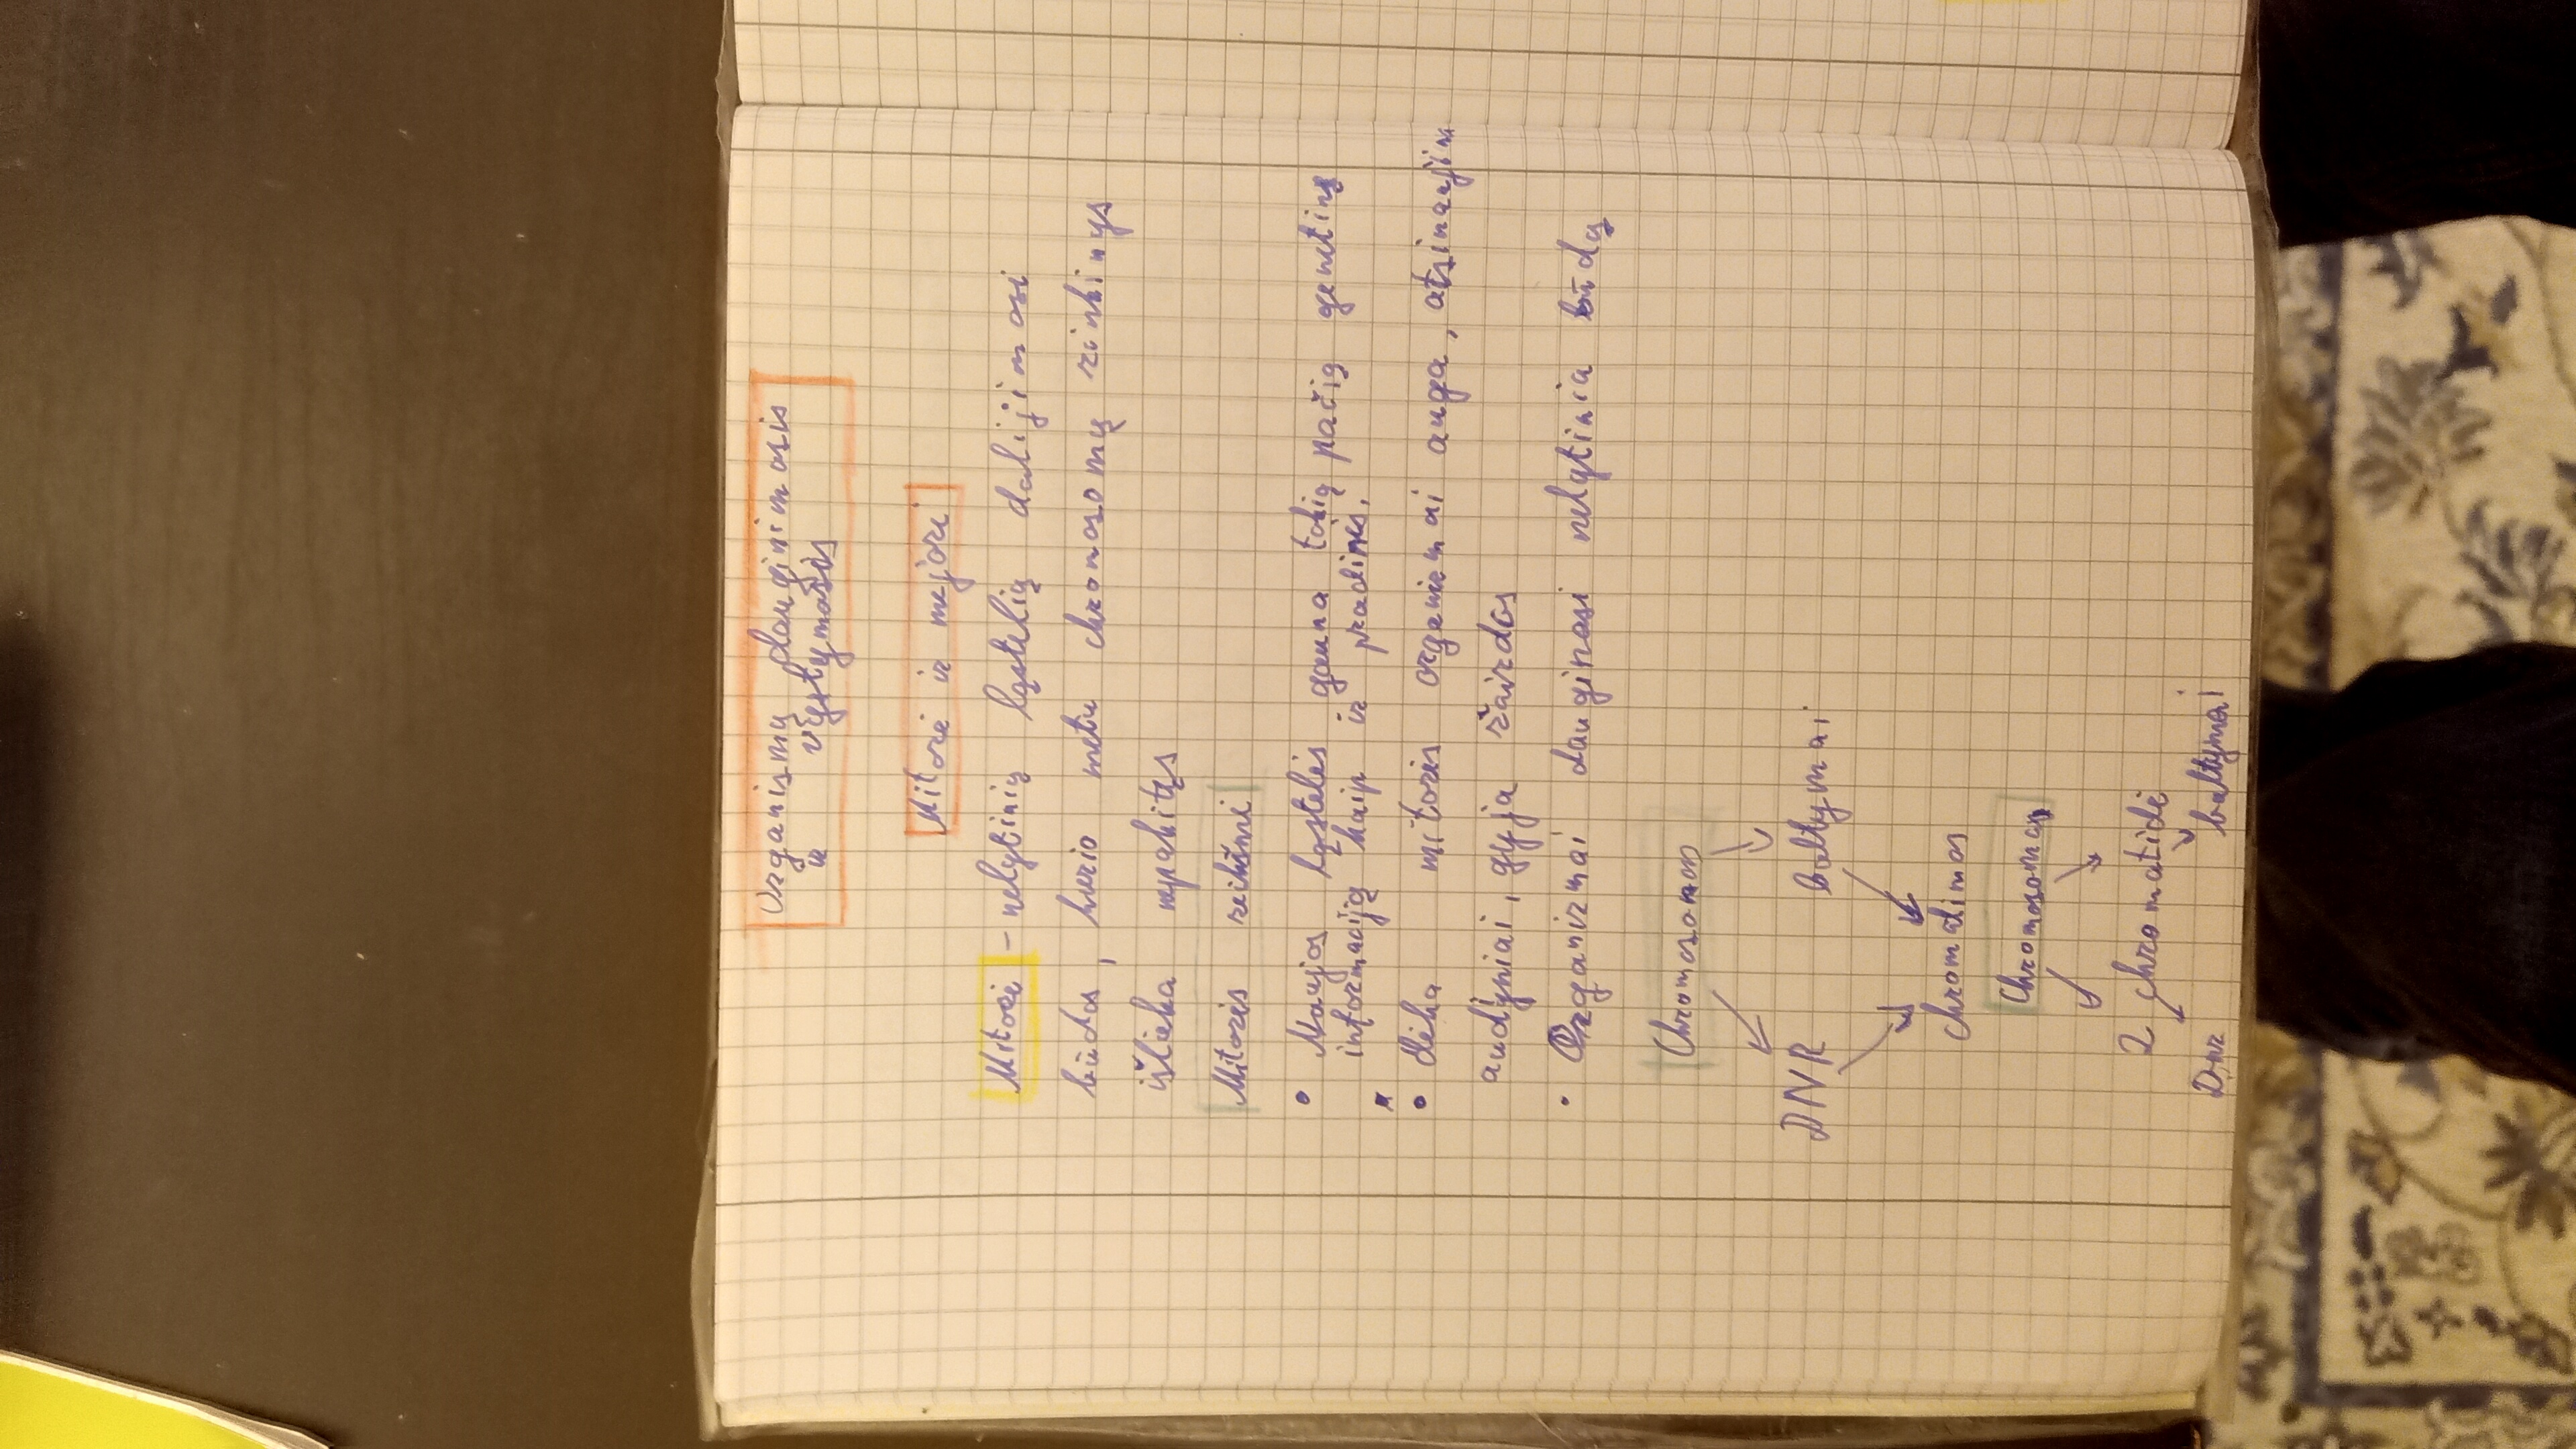 Organismų dauginimasis
ir vystymasis
Mitozė ir mejozė
Mitozė - nelytinių ląstelių dalijimosi
būdas, kurio metu chromosomų rinkinys
išlieka nepakitęs
Mitozės reikšmė
• Naujos ląstelės gauna tokią pačią genetinę
informaciją kaip ir pradinės.
• dėka mitozės organizmai auga, atsinaujina
audiniai, gyja žaizdos
• Organizmai dauginasi nelytinia būdų
Chromosomos
DNR baltymai
chromatinas
Chromosomos
2 chromatidė
Dnr baltymai